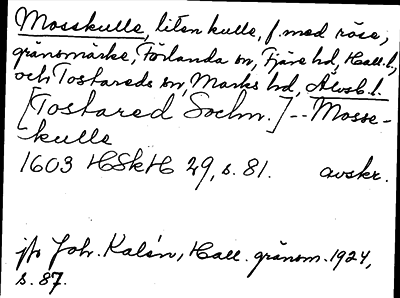 Mosskulle, liten kulle, f. med röse,
gränsmärke, Förlanda sn, Fjäre hd, Hall. l.,
och Tostareds sn, Marks hd, Älvsb. l.
[Tostared Sochn.] -- Mosse-
kulle
1603 HSkH 29, s. 81. avskr.
jfr Joh. Kalén, Hall. gränsm. 1924,
s. 87.